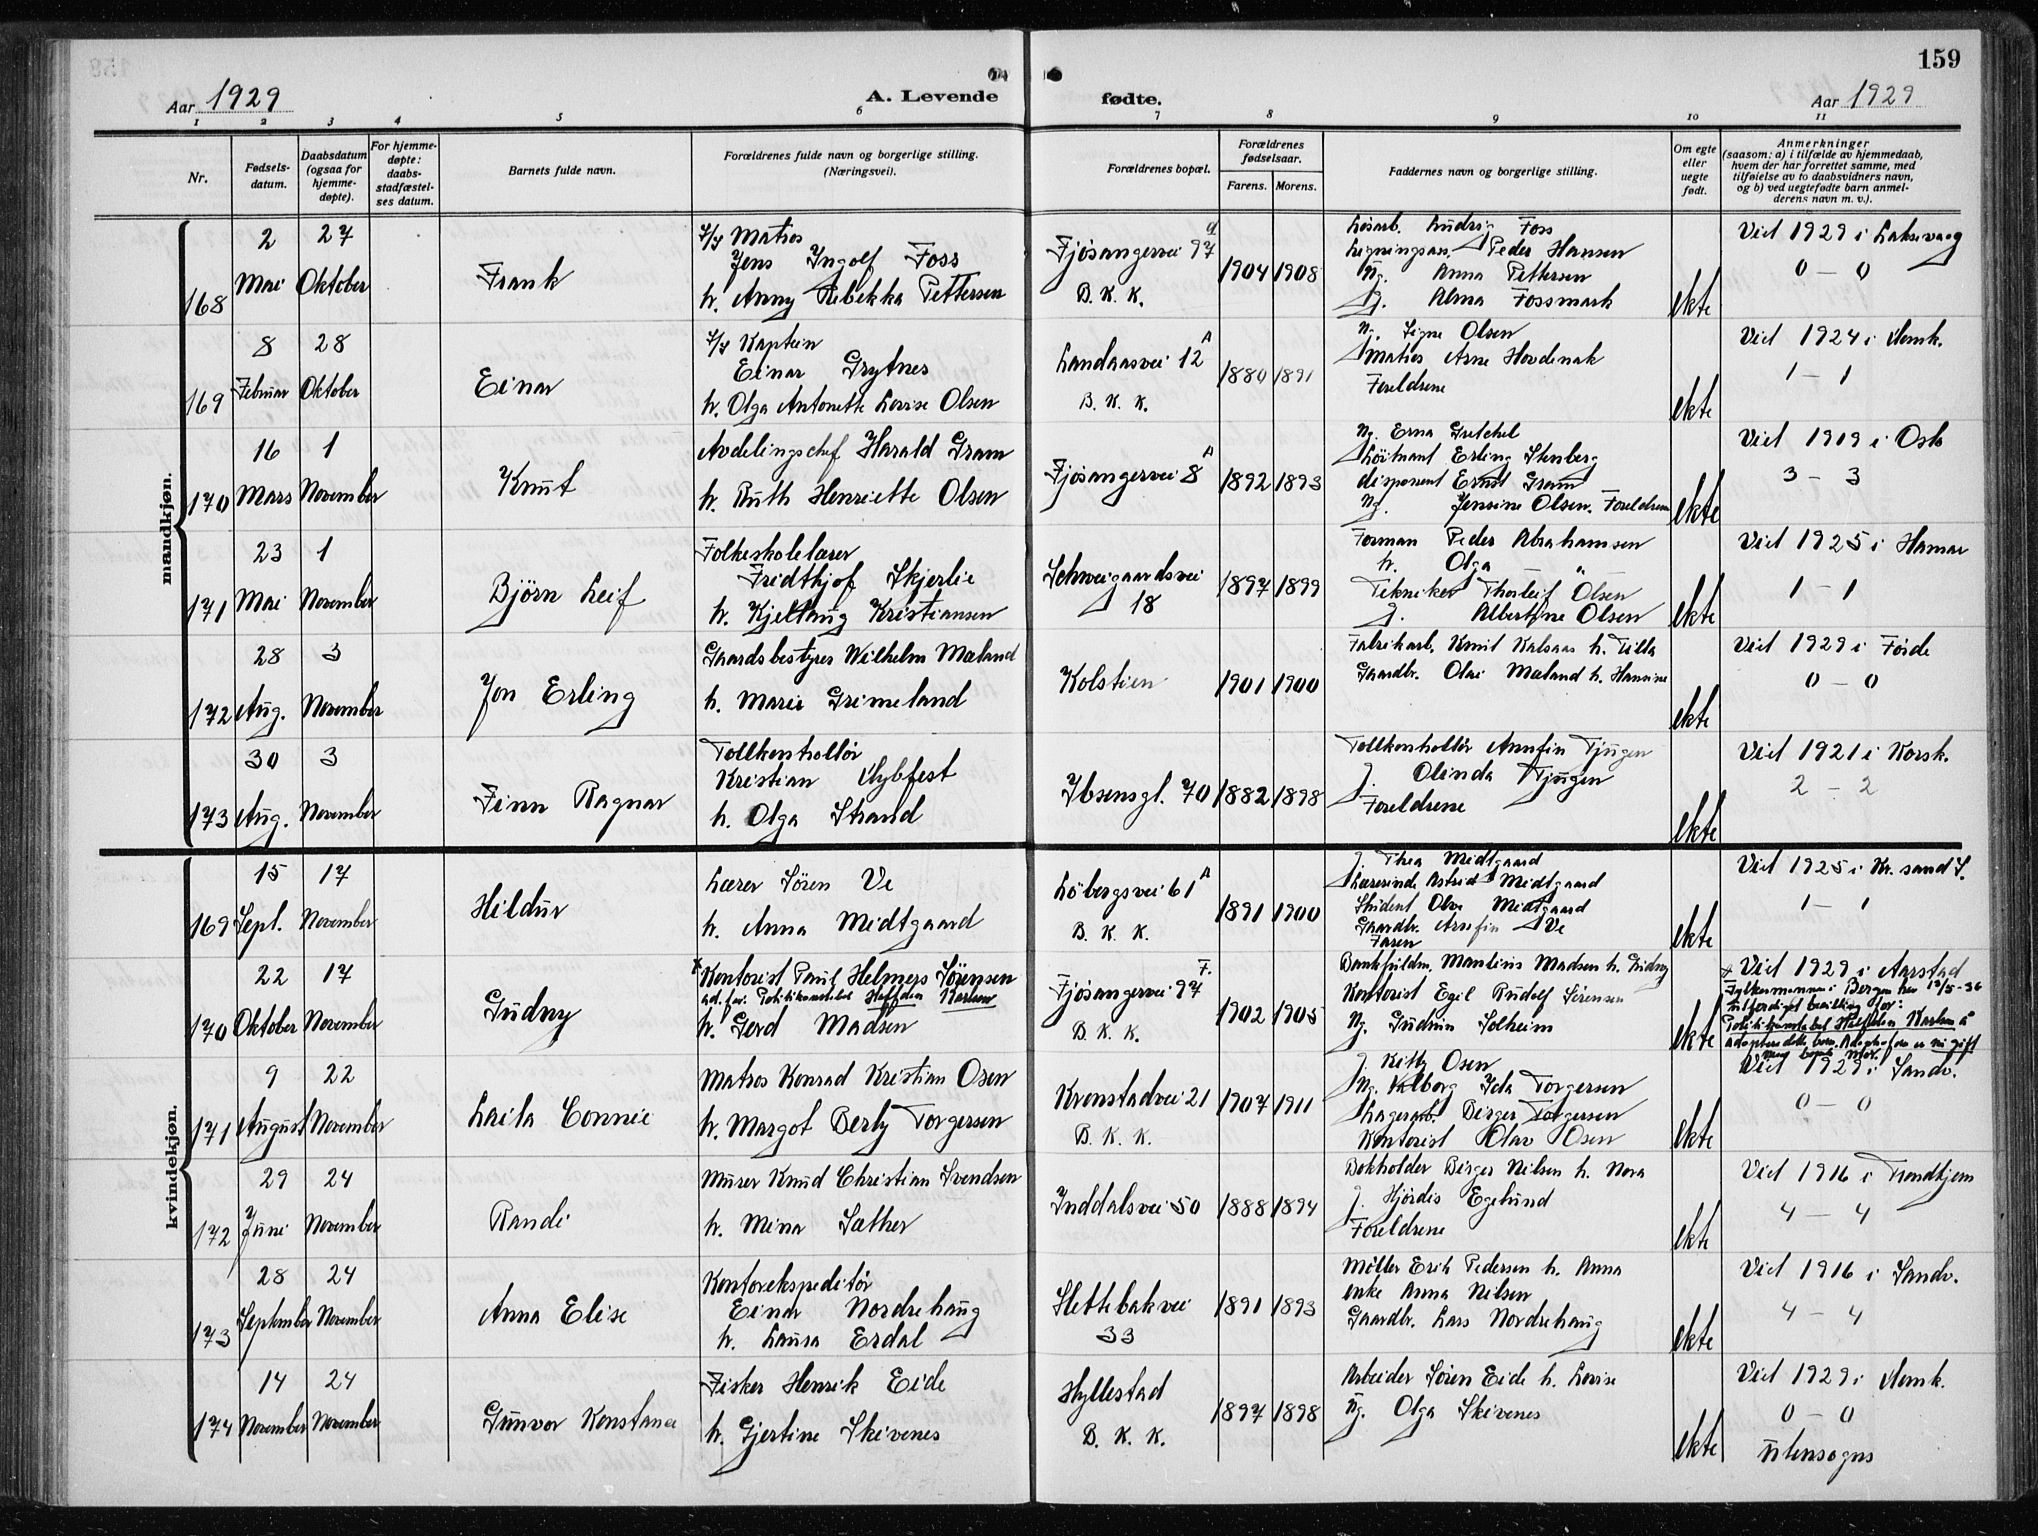 159
Aar 1929
A. Levende fødte.
Aar 1929
1 2 3 4 5 6 7 8 9 10 11
Nr.
Fødsels-
datum.
Daabsdatum
(ogsaa for
hjemme-
døpte).
For hjemme-
døpte:
daabs-
stadfæstel-
ses datum.
Barnets fulde navn.
Forældrenes fulde navn og borgerlige stilling.
(Næringsvei).
Forældrenes bopæl.
Forældrenes
fødselsaar.
Farens. Morens.
Faddernes navn og borgerlige stilling.
Om egte
eller
uegte
født.
Anmerkninger
(saasom: a) i tilfælde av hjemmedaab,
hvem der har forrettet samme, med
tilføielse av to daabsvidners navn,
og b) ved uegtefødte barn anmel-
derens navn m. v.).
mandkjøn.
168
2 Mai
27 Oktober
Frank
Matros
Jens Ingolf Foss
h. Anny Rebekka Pettersen
Fjøsangervei 97
B. K. K.
1904 1908
Løsarb. Ludvig Foss
Ligningsass. Peder Hansen
Ug. Anna Pettersen
J. Alma Fossmark
ekte
Viet 1929 i Laksevaag
0 – 0
169
8 Februar
28 Oktober
Einar
Kaptein
Einar Grytnes
h. Olga Antonette Lovise Olsen
Landaasvei 12 A
B. K. K.
1880 1891
Ug. Signe Olsen
Matros Arne Hovdenak
Foreldrene
ekte
Viet 1924 i Domk.
1 – 1
170
16 Mars
1 November
Knut
Avdelingschef Harald Gram
h. Ruth Henriette Olsen
Fjøsangervei 8 A
1892 1893
Ug. Erna Gretchel
Løitnant Erling Stenberg
disponent Ernst Gram
Ug. Jensine Olsen. Foreldrene
ekte
Viet 1919 i Oslo
3 – 3
171
23 Mai
1 November
Bjørn Leif
Folkeskolelærer
Fridthjof Skjerlie
h. Kjellaug Kristiansen
Schweigaardsvei
18
1897 1899
Forman Peder Abrahamsen
h. Olga "
Tekniker Thorleif Olsen
J. Albertine Olsen
ekte
Viet 1925 i Hamar
1 – 1
172
28 Aug.
3 November
Jon Erling
Gaardsbestyrer Wilhelm Mæland
h. Marie Grimeland
Kolstien
1901 1900
Fabrikarb. Knut Kalsaas h. Tilla
Gaardbr. Olai Mæland h. Hannine
ekte
Viet 1929 i Førde
0 – 0
173
30 Aug.
3 November
Finn Ragnar
Tollkontrollør
Kristian Mybfest
h. Olga Strand
Ibsensgt. 70
1882 1898
Tollkontrollør Arnfin Tjugen
J. Olinda Tjugen
Foreldrene
ekte
Viet 1921 i Korsk.
2 – 2
kvindekjøn.
169
15 Sept.
17 November
Hildur
Lærer Søren Ve
h. Anna Midtgaard
Løbergsvei 61 A
B. K. K.
1891 1900
J. Thea Midtgaard
Lærerinde Astrid Midtgaard
Student Olav Midtgaard
Gaardbr. Arnfin Ve
Faren
ekte
Viet 1925 i Kr. sand S.
1 – 1
170
22 Oktober
17 November
Gudny
x Kontorist Paul Helmers Sørensen
ad. far: Politikonstabel Halfdan Karlsen
h. Gerd Madsen
Fjøsangervei 97 F.
B. K. K.
1902 1905
Bankfuldm. Mantinis Madsen h. Gudny
Kontorist Egil Rudolf Sørensen
Ug. Gudrun Solheim
ekte
x Viet 1929 i Aarstad
Fylkesmannen i Bergen har 12/5-36
utferdiget bevilling for:
Politikonstabel Halfdan Karlsen å
adoptere dette barn. Adoptivfaren er nu gift
med barnets mor.
171
9 August
22 November
Laila Connie
Matros Konrad Kristian Osen
h. Margot Berly Torgersen
Kronstadvei 21
B. K. K.
1907 1911
J. Kitty Osen
Ug. Valborg Ida Torgersen
Lagerarb. Birger Torgersen
Kontorist Olav Osen
ekte
Viet 1929 i Sandv.
0 – 0
172
29 Juni
24 November
Randi
Murer Knud Christian Svendsen
h. Mina Sæther
Inddalsvei 50
1888 1894
Bokholder Birger Nilsen h. Nora
J. Hjørdis Egelund
Foreldrene
ekte
Viet 1916 i Trondhjem
4 – 4
173
28 September
24 November
Anna Elise
Kontorekspeditør
Einar Nordrehaug
h. Laura Erdal
Slettebakvei
33
1891 1893
Møller Erik Pedersen h. Anna
enke Anna Nilsen
Gaardbr. Lars Nordrehaug
ekte
Viet 1916 i Sandv.
4 – 4
174
14 November
24 November
Gunvor Konstance
Fisker Henrik Eide
h. Gjertine Skivenes
Hyllestad
B. K. K.
1897 1898
Arbeider Søren Eide h. Lovise
Ug. Olga Skivenes
ekte
Viet 1929 i Domk.
0 – 0
utensogns